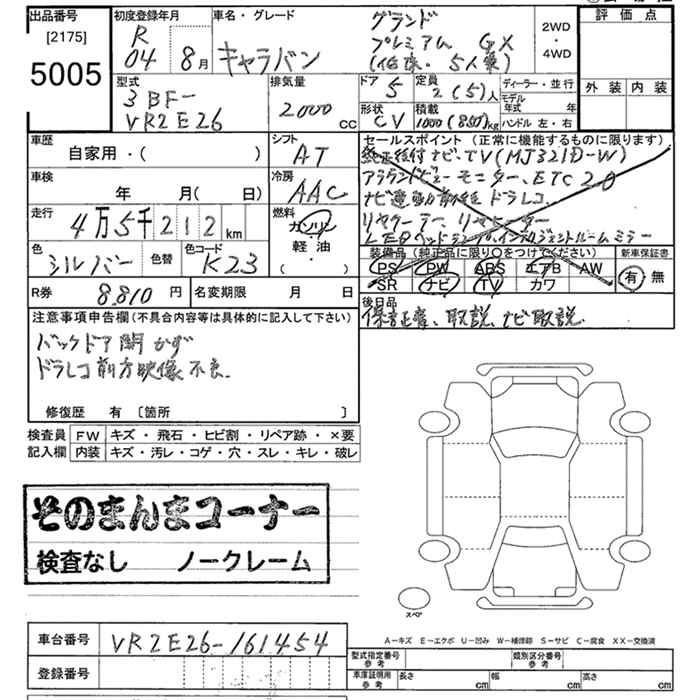 出品番号
[2175]
5005
初度登録年月
R
04 8月
車名・グレード
キャラバン
グランド
プレミアム GX
(低床・5人乗)
2WD
・
4WD
評価点
外装 内装
型式
3BF-
VR2E26
排気量
2000 cc
ドア 5
定員 2(5)人
ディーラー・並行
モデル年式 年
形状 CV
積載 1000(850)kg
ハンドル 左・右
車歴
自家用・( )
シフト
AT
セールスポイント (正常に機能するものに限ります)
純正後付ナビ、TV(MJ321D-W)
アラウンドビューモニター、ETC2.0
ナビ連動前後ドラレコ
リヤクーラー、リヤヒーター
LEDヘッドランプ、インテリジェントルームミラー
車検
年 月( 日)
冷房
AAC
走行
4万5千212km
燃料
ガソリン
軽油・
( )
色
シルバー
色替
色コード
K23
装備品 (純正品に限り○をつけてください)
PS PW ABS エアB AW
SR ナビ TV カワ
新車保証書
有・無
R券 8,810円
名変期限 月 日
後日品
保証書、取説、ナビ取説
注意事項申告欄 (不具合内容等は具体的に記入して下さい)
バックドア開かず
ドラレコ前方映像不良
修復歴 有 [箇所 ]
検査員 FW キズ・飛石・ヒビ割・リペア跡・×要
記入欄 内装 キズ・汚レ・コゲ・穴・スレ・キレ・破レ
そのまんまコーナー
検査なし ノークレーム
スペア
A−キズ E−エクボ U−凹み W−補修跡 S−サビ C−腐食 XX−交換済
車台番号 VR2E26-161454
登録番号
型式指定番号 参考
類別区分番号 参考
車庫証明用 参考 長さ cm 幅 cm 高さ cm